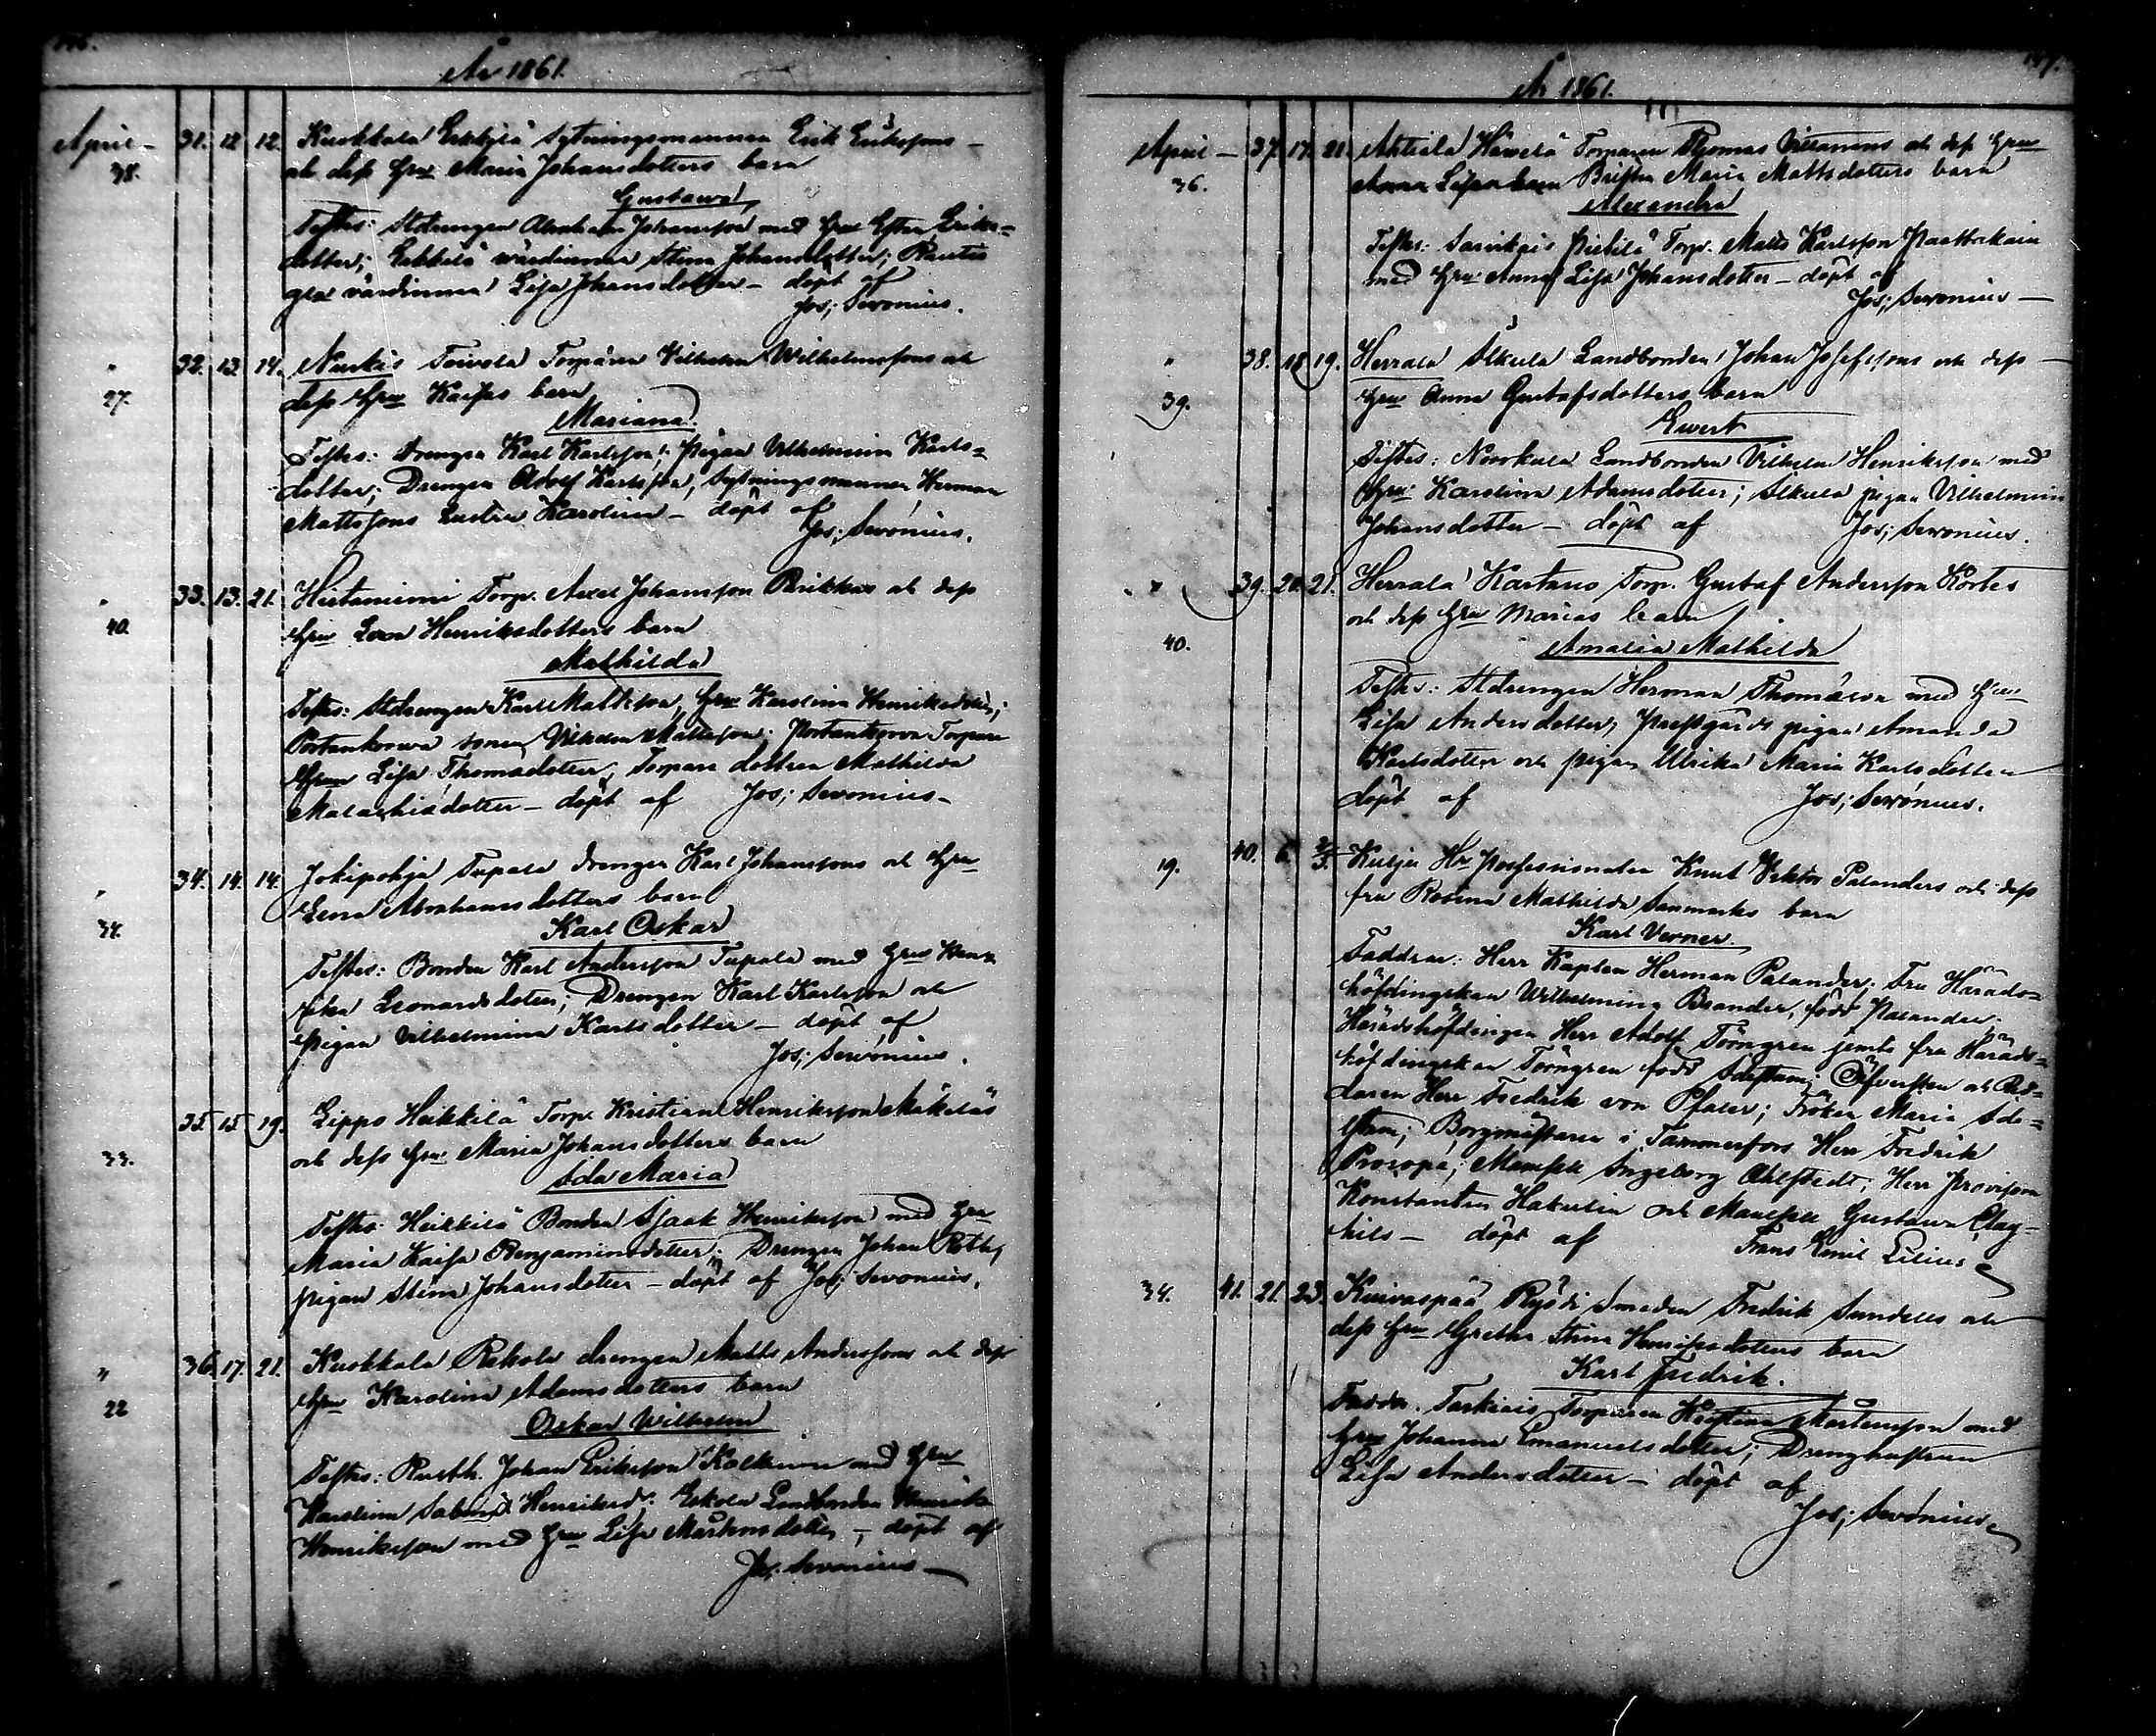 År 1861.
April - 31. 12 12. Kuokkala Erkkilä Sytningsmannen Erik Erikssons
38. och dess Hru Maria Johansdotters barn
Gustava
Testes: Stdrengen Abraham Johansson med Hru Ester Eriks=
dotter; Erkkilä värdinnan Stina Johansdotter;
värdinnan Lisa Johansdotter - döpt af
Jos; Seronius.
" 32. 13. 14. Nurkis Toivola Torparen Vilhelm Wilhelmssons och
27. dess Hru Kaisas barn
Mariana.
Testes: Drengen Karl Karlsson, Pigan Vilhelmina Karls=
dotter; Drengen Adolf Karlsson, Sytningsmannen Herman
Mattssons hustru Karolina - döpt af
Jos; Seronius.
" 33. 13. 21. Hietaniemi Torp. Axel Johansson och dess
40. Hru Lena Henriksdotters barn
Mathilda
Testes: Stdrengen Karl Mattsson, Hru Karolina Henriksdotter;
sonen Vilhelm Mattsson; Torpare
Hrun Lisa Thomasdotter, Torpare dottren Mathilda
Malachiadotter - döpt af Jos; Seronius -
" 34. 14. 14. Jokipohja Tupala drengen Karl Johanssons och Hru
34. Lena Abrahamsdotters barn
Karl Oskar
Testes: Bonden Karl Andersson Tupala med Hru
Leonardsdotter; Drengen Karl Karlsson och
pigan Vilhelmina Karlsdotter - döpt af
Jos; Seronius.
35. 15. 19. Lippo Heikkilä Torp. Kristian Henriksson Mäkeläs
33. och dess Hru Maria Johansdotters barn
Ida Maria
Testes: Heikkilä Bonden Isaak Henriksson med Hru
Maria Kaisa Benjaminsdotter; Drengen Johan
pigan Stina Johansdotter - döpt af Jos; Seronius.
" 36. 17. 21. Kuokkala Rekola drengen Matts Anderssons och dess
22 Hru Karolina Adamsdotters barn
Oskar Wilhelm
Testes: Rusth. Johan Eriksson med Hru
Karolina Henriksd. Eskola Landbonden Henrik
Henriksson med Hru Lisa Mårtensdotter, - döpt af
Jos; Seronius -
År 1861.
April - 37. 17. 21. Ahtiala Torparen Thomas och dess Hru
36. Maria Mattsdotters barn
Alexandra
Testes: Torp. Matts Karlsson
med Hru Anna Lisa Johansdotter - döpt af
Jos; Seronius -
" 38. 18. 19. Herrala Alkula Landbonden Johan Josefssons och dess
39. Hru Anna Gustafsdotters barn
Evert
Testes: Landbonden Vilhelm Henriksson med
Hru Karolina Adamsdotter; Alkula pigan Vilhelmina
Johansdotter - döpt af Jos; Seronius.
" 39. 20. 21. Herrala Kartano Torp. Gustaf Andersson Kortes
40. och dess Hru Marias barn
Amalia Mathilda
Testes: Stdrengen Herman Thomasson med Hru
Lisa Andersdotter, Prestgårds pigan Amanda
Karlsdotter och pigan Ulrika Maria Karlsdotter
döpt af Jos; Serönius.
19. 40. 6. 2/5. Kulju Hr Possessionaten Knut Viktor Palanders och dess
fru Rosina Mathilda Sanmarks barn
Karl Verner.
Faddrar: Herr Kapten Herman Palander; Fru Härads=
höfdingskan Wilhelmina Brander, född Palander.
Häradshöfdingen Herr Adolf Törngren jemte fru Härads=
höfdingskan Törngren född Idestam; Öfversten och Rid=
daren Herr Fredrik von Pfaler; Fröken Maria Ide=
stam; Borgmästaren i Tammerfors Herr Fredrik
Procopé; Mamsell Ingeborg Ahlstedt, Herr Provisorn
Konstantin Hakulin och Mamsell Gustava Clay=
hills - döpt af Frans Emil Lilius
34. 41. 21. 23. Kuivaspää Ryödi Smeden Fredrik Sundells och
dess Hru Gretha Stina Henriksdotters barn
Karl Fredrik.
Faddr. Torparen Mårtensson med
Hru Johanna Emanuelsdotter; Dränghustrun
Lisa Andersdotter - döpt af
Jos; Serönius